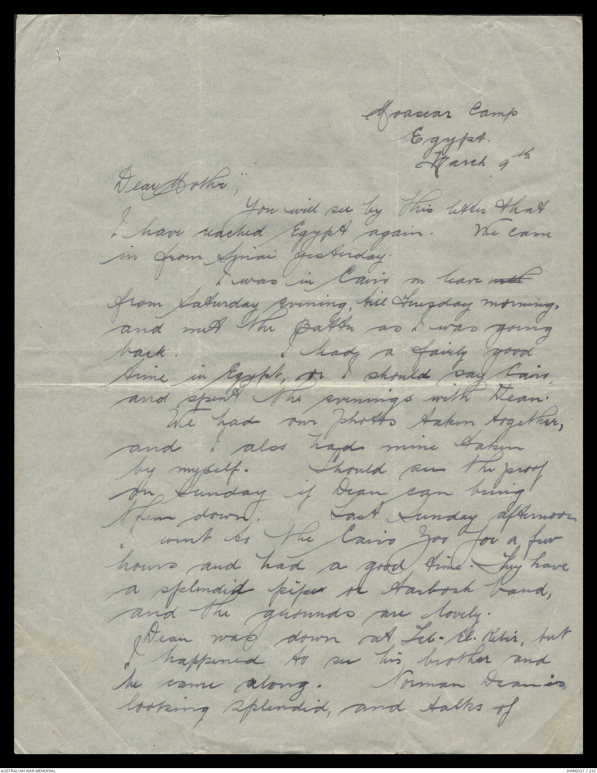 Moascar Camp
Egypt.
March 9th
Dear Mother,
You will see by this letter that
I have reached Egypt again. We came
in from Sinai yesterday.
I was in Cairo on leave
from Saturday evening, till Tuesday morning,
and met the Battn as I was going
back. I had a fairly good
time in Egypt, or I should say Cairo,
and spent the evenings with Dean.
We had our photos taken together,
and I also had mine taken
by myself. Should see the proof
on Sunday if Dean can bring
them down. Last Sunday afternoon
I went to the Cairo Zoo for a few
hours and had a good time. They have
a splendid pipe or tarbosh band,
and the grounds are lovely.
Dean was down at Tel-El-Kebir, but
I happened to see his brother and
he came along. Norman Dean is
looking splendid, and talks of
AUSTRALIAN WAR MEMORIAL
AWM2021.7.243